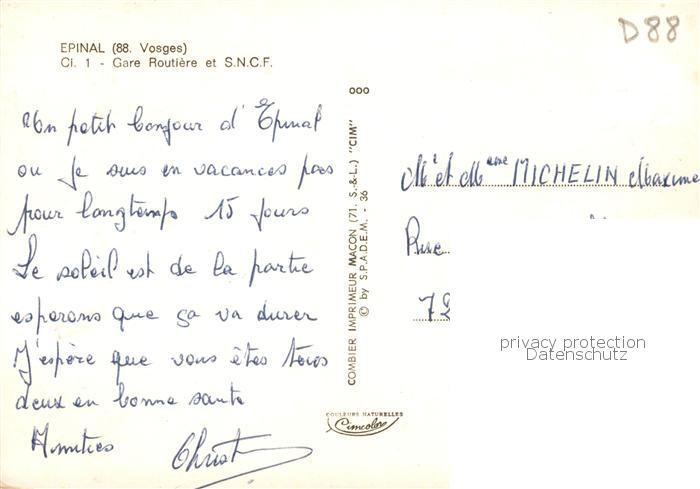 D88
EPINAL (88. Vosges)
Cl. 1 - Gare Routière et S.N.C.F.
Un petit bonjour d'Epinal
ou je suis en vacances pas
pour longtemps 15 jours
Le soleil est de la partie
esperons que ça va durer
J'espère que vous êtes tous
deux en bonne sante
Amities
Christ
COMBIER IMPRIMEUR MACON (71. S.-&-L.) "CIM"
© by S.P.A.D.E.M. - 36
COULEURS NATURELLES
Cimcolor
Mr et Mme MICHELIN Maxime
Rue
72
privacy protection
Datenschutz